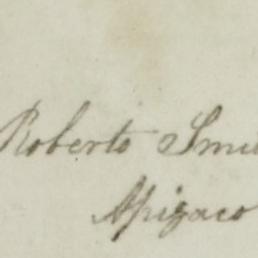 Roberto Smi
Apizaco